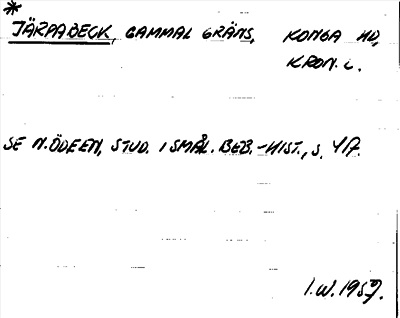 *
JÄRPABECK, GAMMAL GRÄNS, KONGA HD,
KRON. L.
SE N. ÖDEEN, STUD. I SMÅL. BEB.-HIST., S. 47.
I.W. 1957.